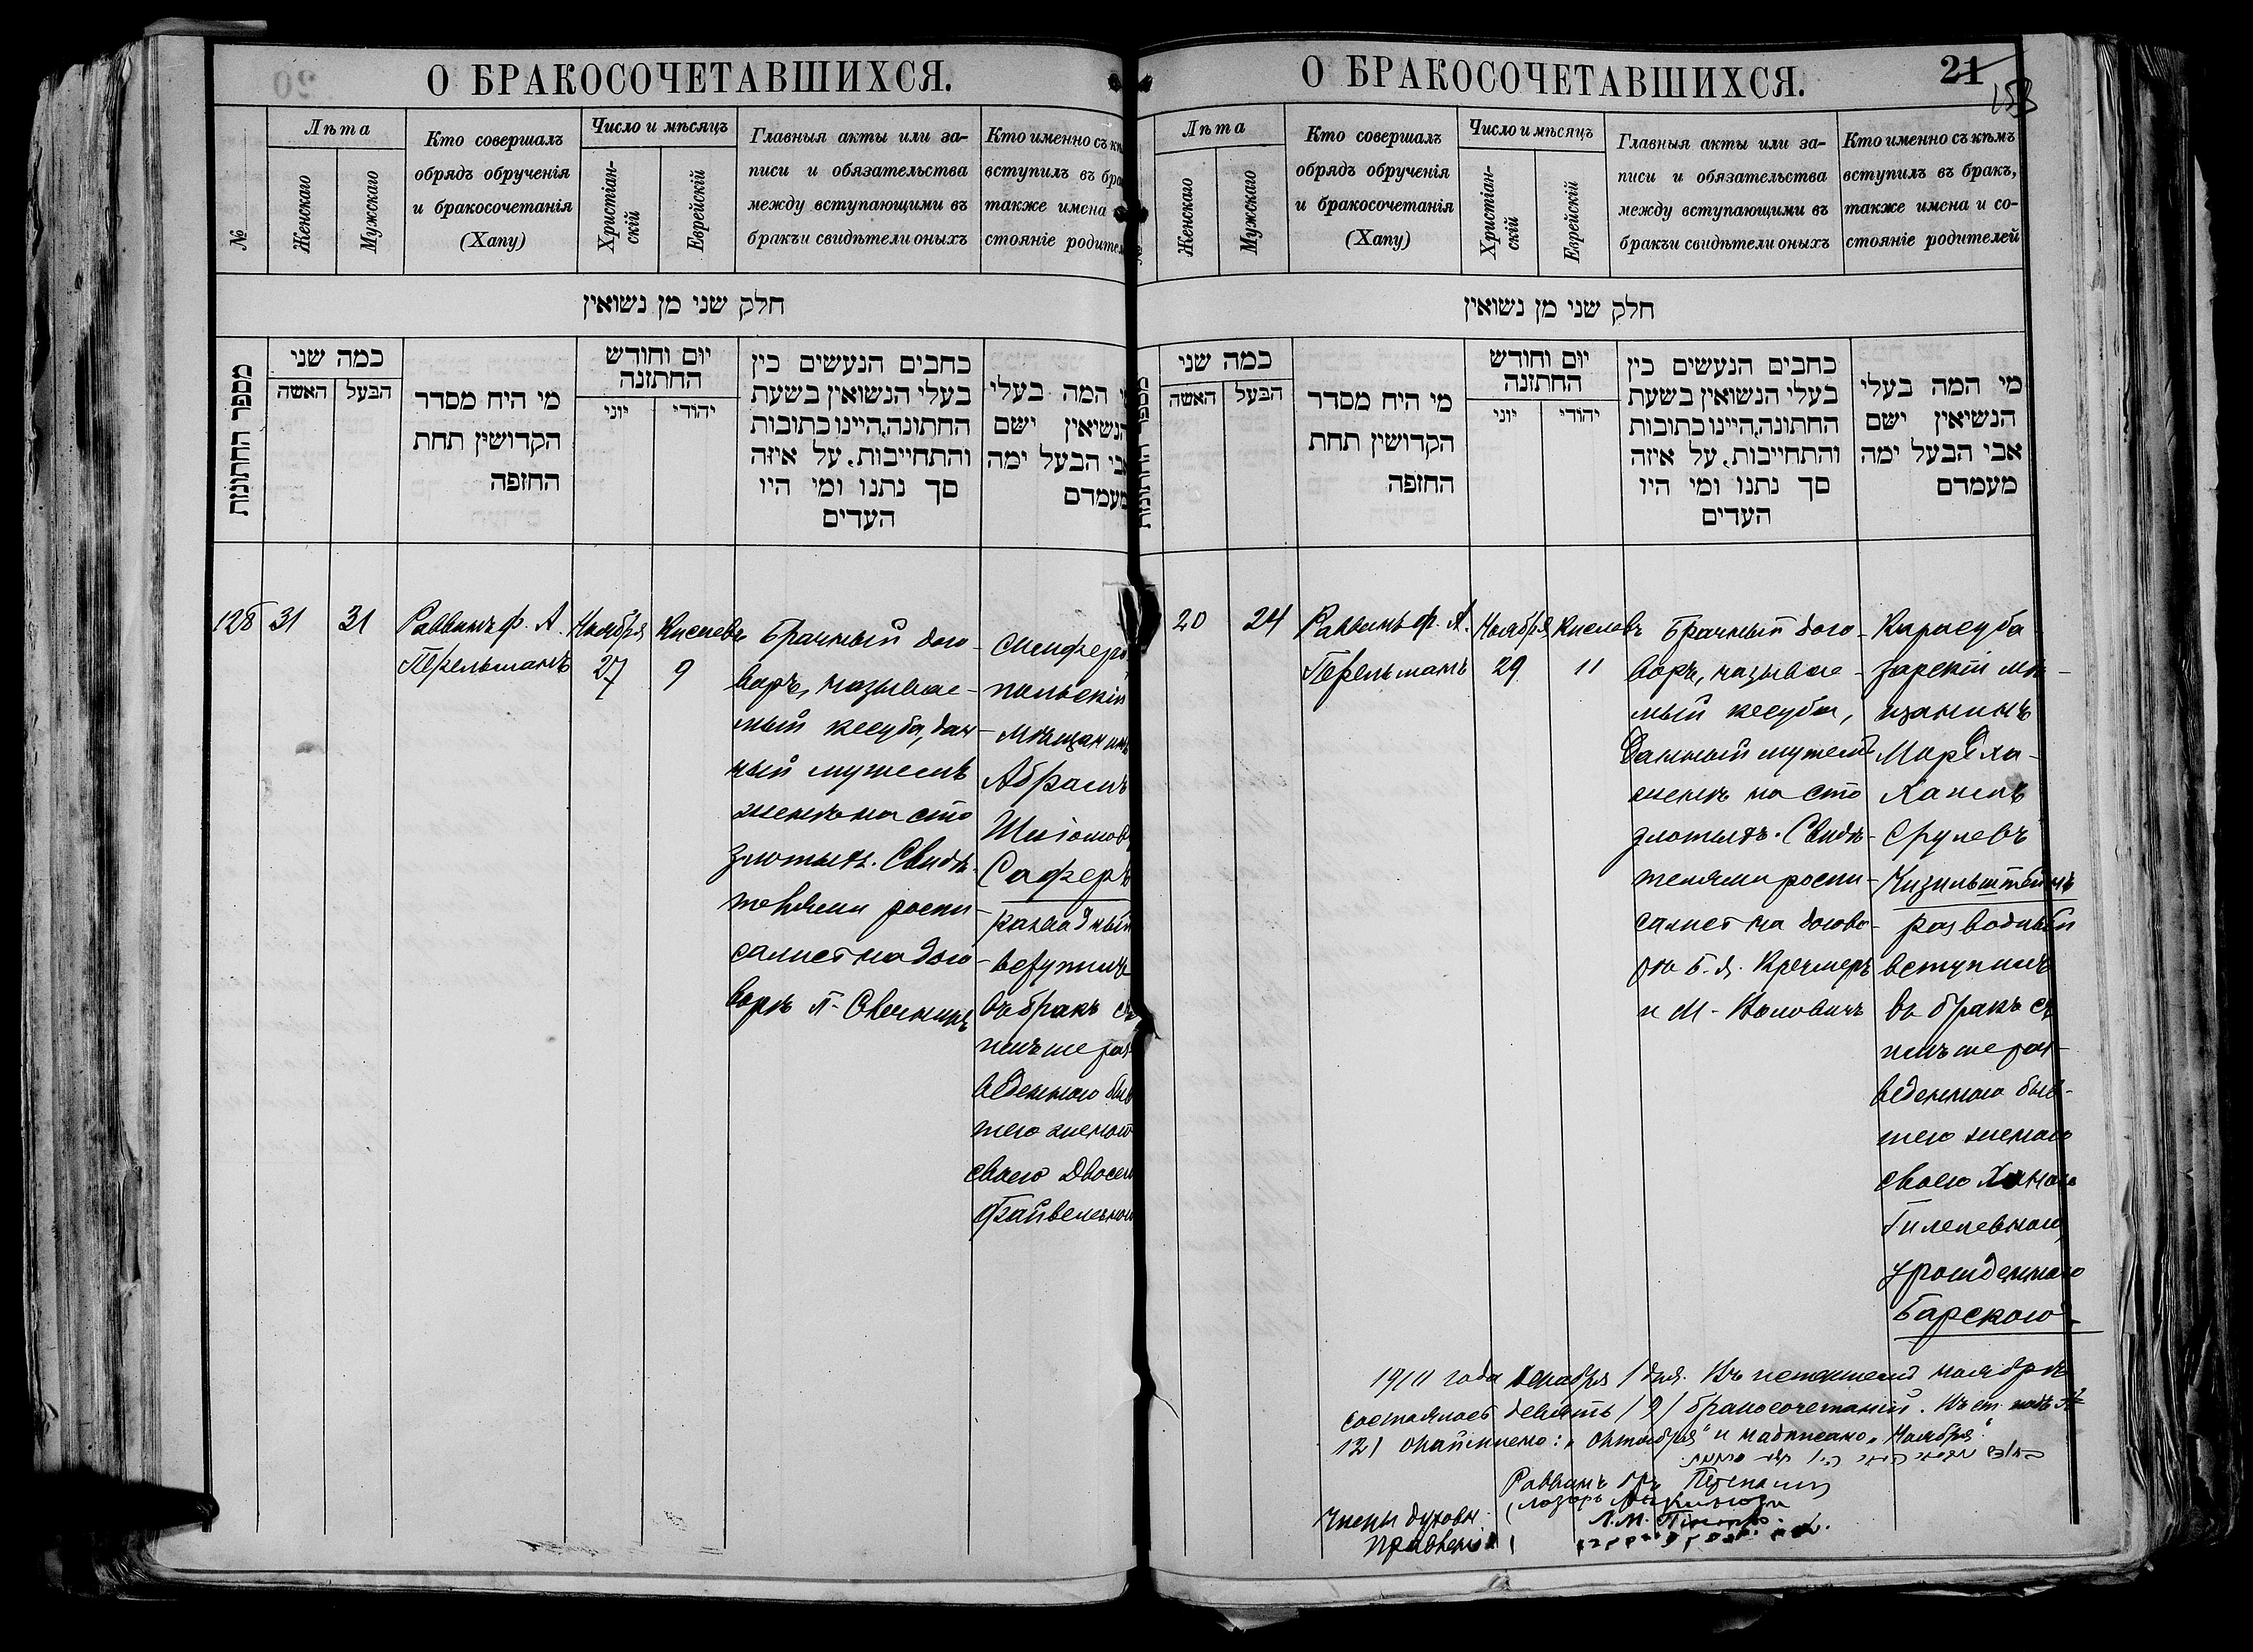 О БРАКОСОЧЕТАВШИХСЯ.
№
Лѣта
Женскаго
Мужскаго
Кто совершалъ
обрядъ обрученія
и бракосочетанія
(Хапу)
Число и мѣсяцъ
Христіан-
скій
Еврейскій
Главныя акты или за-
писи и обязательства
между вступающими въ
бракъи свидѣтели оныхъ
Кто именно съ
вступилъ въ
также имена
стояніе
חלק שני מן נשואין
מספר החתונות
כמה שני
האשה
הבעל
מי היח מסדר
הקדושין תחת
החופה
יום וחודש
החתונה
יוני
יהודי
כחבים הנעשים בין
בעלי הנשואין בשעת
החתונה,היינו כתובות
והתחייבות, על איזה
סך נתנו ומי היו
העדים
המה בעלי
הנשיאין ישם
אבי הבעל ימה
מעמדם
128
31
31
Раввинъ Ф. А.
Перельманъ
Ноября
27
Кислевъ
9
Брачный дого-
воръ, называе-
мый кесуба, дан-
ный мужемъ
женѣ на сто
злотыхъ. Свидѣ-
телями роспи-
сались на дого-
ворѣ
Симферо
польскій
мѣщанинъ
Абрамъ
Шліомовъ
Саферъ
разводный
вступилъ
въ бракъ съ
же раз-
веденною быв
шею женою
своею Двосею
Файвелевною
О БРАКОСОЧЕТАВШИХСЯ.
21
153
Лѣта
Женскаго
Мужскаго
Кто совершалъ
обрядъ обрученія
и бракосочетанія
(Хапу)
Число и мѣсяцъ
Христіан-
скій
Еврейскій
Главныя акты или за-
писи и обязательства
между вступающими въ
бракъи свидѣтели оныхъ
Кто именно съ кѣмъ
вступилъ въ бракъ,
также имена и со-
стояніе родителей
חלק שני מן נשואין
כמה שני
האשה
הבעל
מי היח מסדר
הקדושין תחת
החופה
יום וחודש
החתונה
יוני
יהודי
כחבים הנעשים בין
בעלי הנשואין בשעת
החתונה,היינו כתובות
והתחייבות, על איזה
סך נתנו ומי היו
העדים
מי המה בעלי
הנשיאין ישם
אבי הבעל ימה
מעמדם
20
24
Раввинъ Ф. А.
Перельманъ
Ноября
29
Кислевъ
11
Брачный дого-
воръ, называе-
мый кесуба,
данный мужемъ
женѣ на сто
злотыхъ. Свидѣ-
телями роспи-
сались на догово-
рѣ Б. Я. Кремеръ
и М.
Карасуба
зарскій мѣ-
щанинъ
Мордха-
Хаимъ
Срулевъ
Кизильштейнъ
разводный
вступилъ
въ бракъ съ
же раз-
веденною быв-
шею женою
своею Ханою
урожденною
Барскою.
1911 года Декабря 1 дня. Въ истекшемъ ноябрѣ
состоялось девять /9/ бракосочетаній. Въ ст. подъ №
121 : „октября" и надписано „Ноября".
Раввинъ
Члены духовн.
правленія